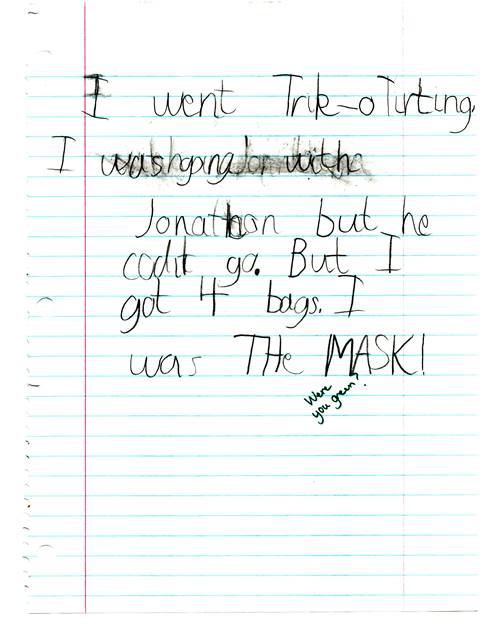 I went Trik-o Tirting.
I was hoping for with
Jonathon but he
codit go. But I
got 4 bags. I
was THe MASK!
Were
you green?